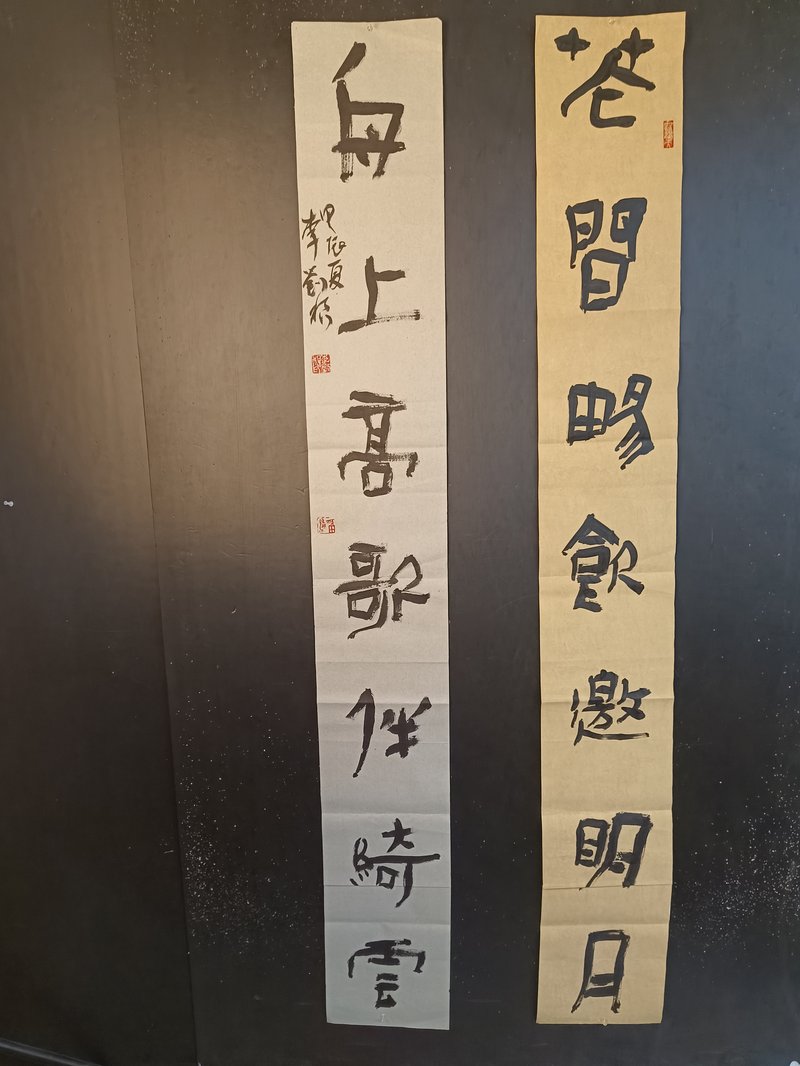 花間暢飲邀明月
舟上高歌伴綺雲
甲辰夏
李